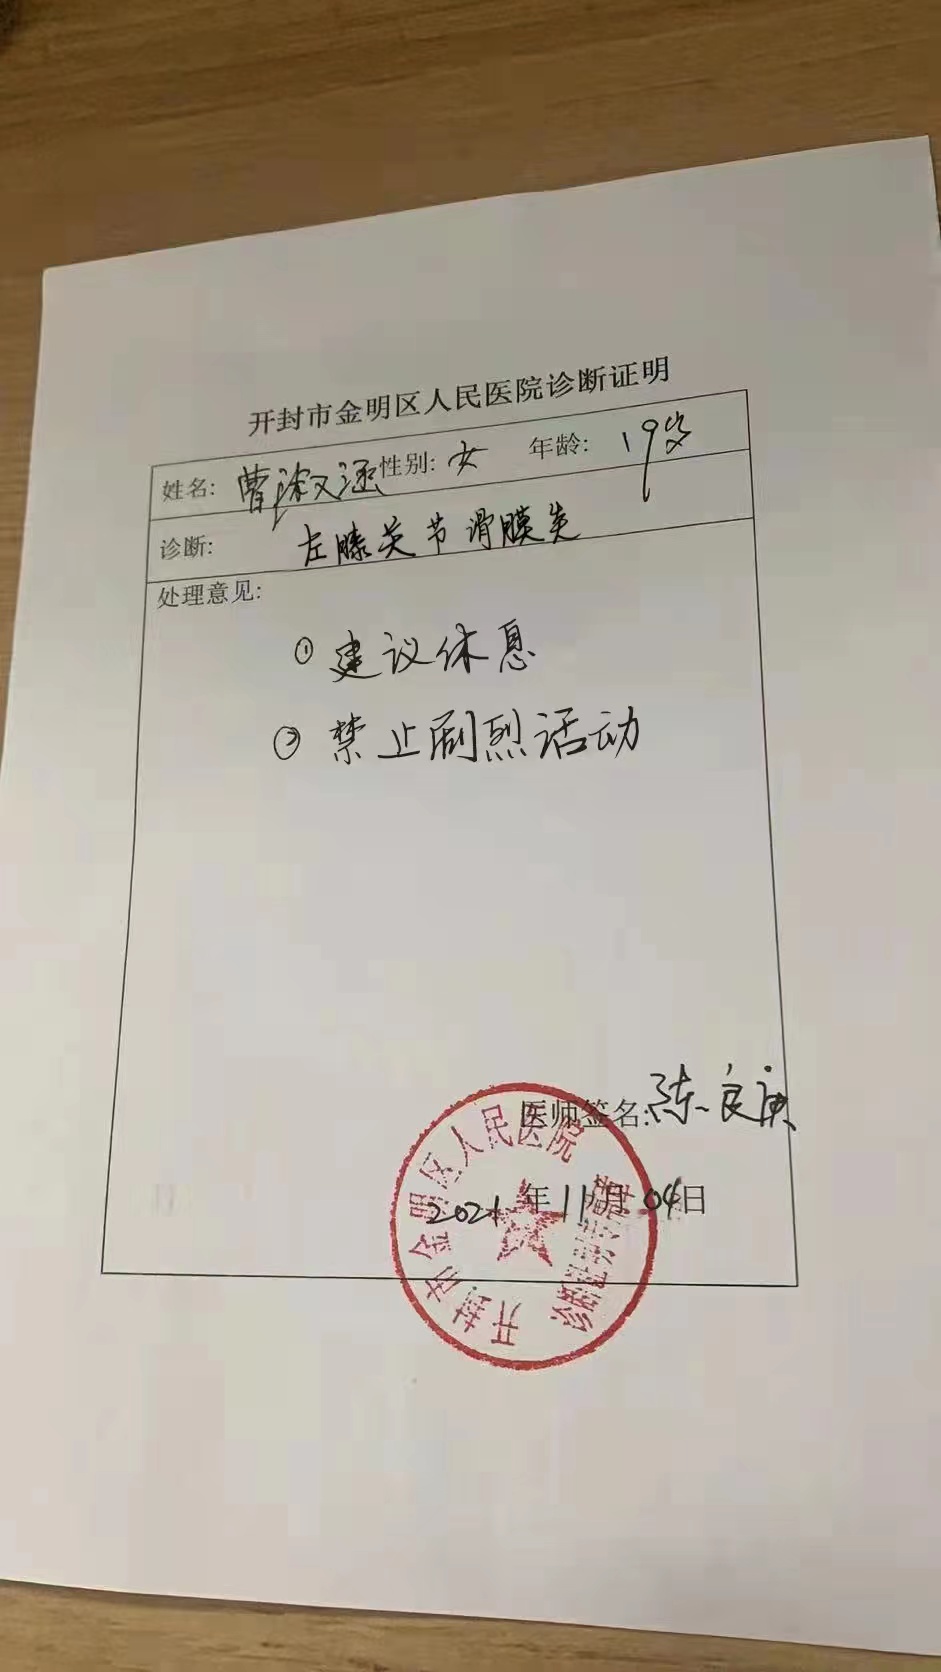 开封市金明区人民医院诊断证明
姓名: 曹淑涵 性别: 女 年龄: 19岁
诊断: 左膝关节滑膜炎
处理意见:
① 建议休息
② 禁止剧烈活动
医师签名: 陈良
2021年11月04日
开封市金明区人民医院